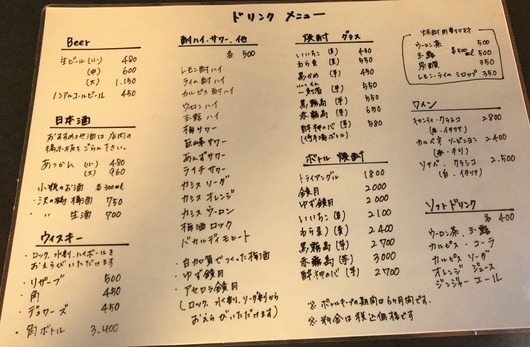 ドリンク メニュー
Beer
生ビール (小) 480
(中) 600
(大) 1.150
ノンアルコールビール 450
日本酒
おすすめ地酒は店内の
掲示板をごらん下さい。
あつかん (小) 480
(大) 960
小瓶のお酒 各300ml
・沢の鶴 梅酒 750
・ 〃 生酒 700
ウィスキー
・ロック、水割、ハイボールを
おえらびいただけます
・リザーブ 500
・角 450
・デュワーズ 450
・角ボトル 3.400
酎ハイ、サワー、他
各 500
レモン酎ハイ
ライム酎ハイ
カルピス酎ハイ
ウーロンハイ
玉露ハイ
梅サワー
巨峰サワー
あんずサワー
ライチサワー
カシスソーダ
カシスオレンジ
カシスウーロン
梅酒ロック
バカルディモヒート
・自家製でつくった梅酒
・ゆず鏡月
・アセロラ鏡月
(ロック、水割、ソーダ割から
おえらびいただけます)
焼酎 グラス
いいちこ (麦)
わら麦 (麦)
黒かめ (芋)
一刻者 (芋)
黒霧島 (芋)
赤霧島 (芋)
(芋) 580
ボトル 焼酎
トライアングル 1800
鏡月 2.000
ゆず鏡月 2.000
いいちこ (麦) 2.100
わら麦 (麦) 2.400
黒霧島 (芋) 2.700
赤霧島 (芋) 3.000
(芋) 2700
※ボトルキープの期間は6ヶ月間です。
※料金は税込価格です
焼酎用割り材
ウーロン茶 500
玉露 500
炭酸 350
レモン・ライムシロップ 350
ワイン
キャンティ・クラシコ 2800
(赤・イタリア)
カルベネ ソービニヨン 2400
(赤・チリ)
ソアベ・クラシコ 2500
(白・イタリア)
ソフトドリンク
各 400
ウーロン茶、玉露
カルピス・コーラ
カルピスソーダ
オレンジ ジュース
ジンジャーエール